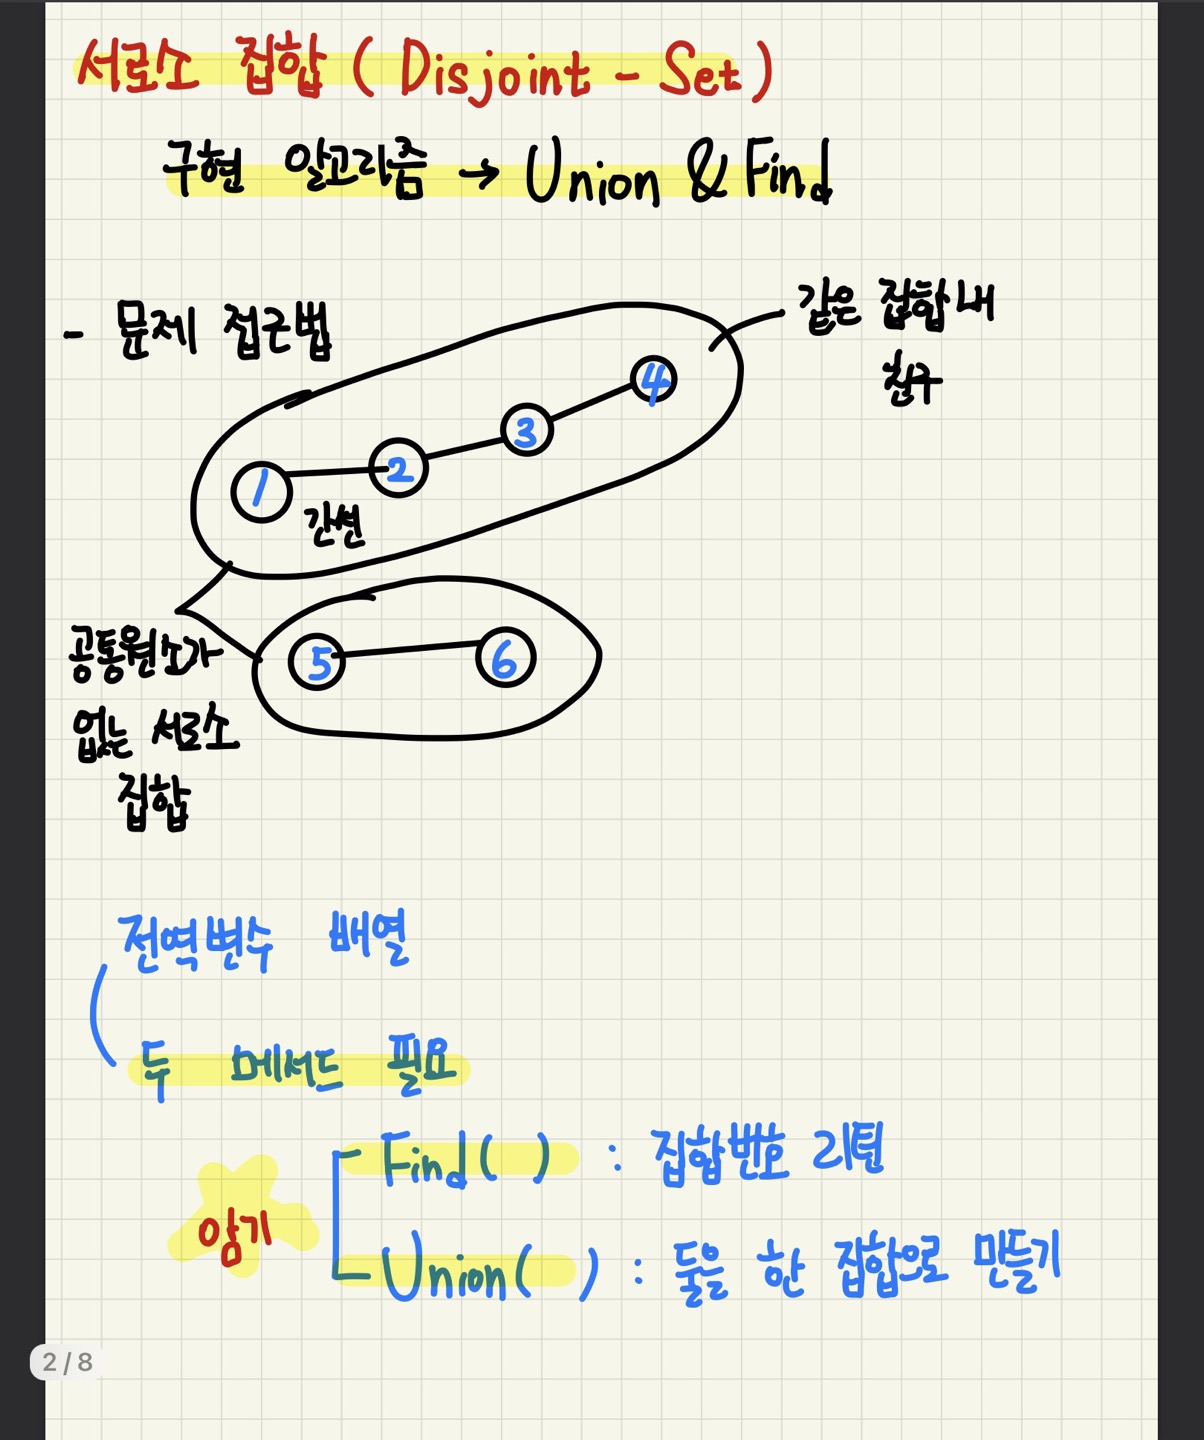 서로소 집합 ( Disjoint - Set )
구현 알고리즘 → Union & Find
- 문제 접근법
같은 집합 내
친구
4
3
2
1
간선
공통원소가
없는 서로소
집합
5
6
전역변수 배열
두 메서드 필요
Find( ) : 집합번호 리턴
암기
Union( ) : 둘을 한 집합으로 만들기
2 / 8